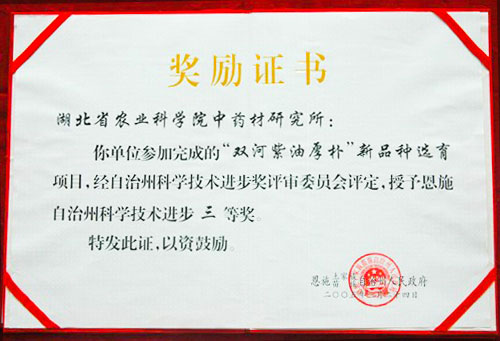 奖励证书
湖北省农业科学院中药材研究所：
你单位参加完成的“双河紫油厚朴”新品种选育
项目，经自治州科学技术进步奖评审委员会评定，授予恩施
自治州科学技术进步 三 等奖。
特发此证，以资鼓励。
恩施土家族苗族自治州人民政府
二〇〇 月二十四日